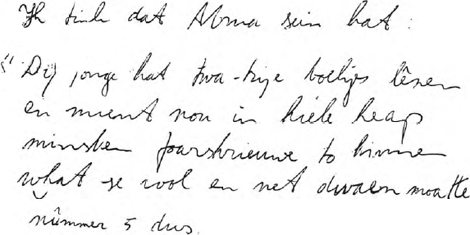 Ik tink dat Abma sein hat:
"Dij jonge hat twa-trije boekjes lêzen
en mient nou in hiele heap
minsken foarskriuwe to kinnen
what se wol en net dwaen moatte
nûmmer 5 dus.